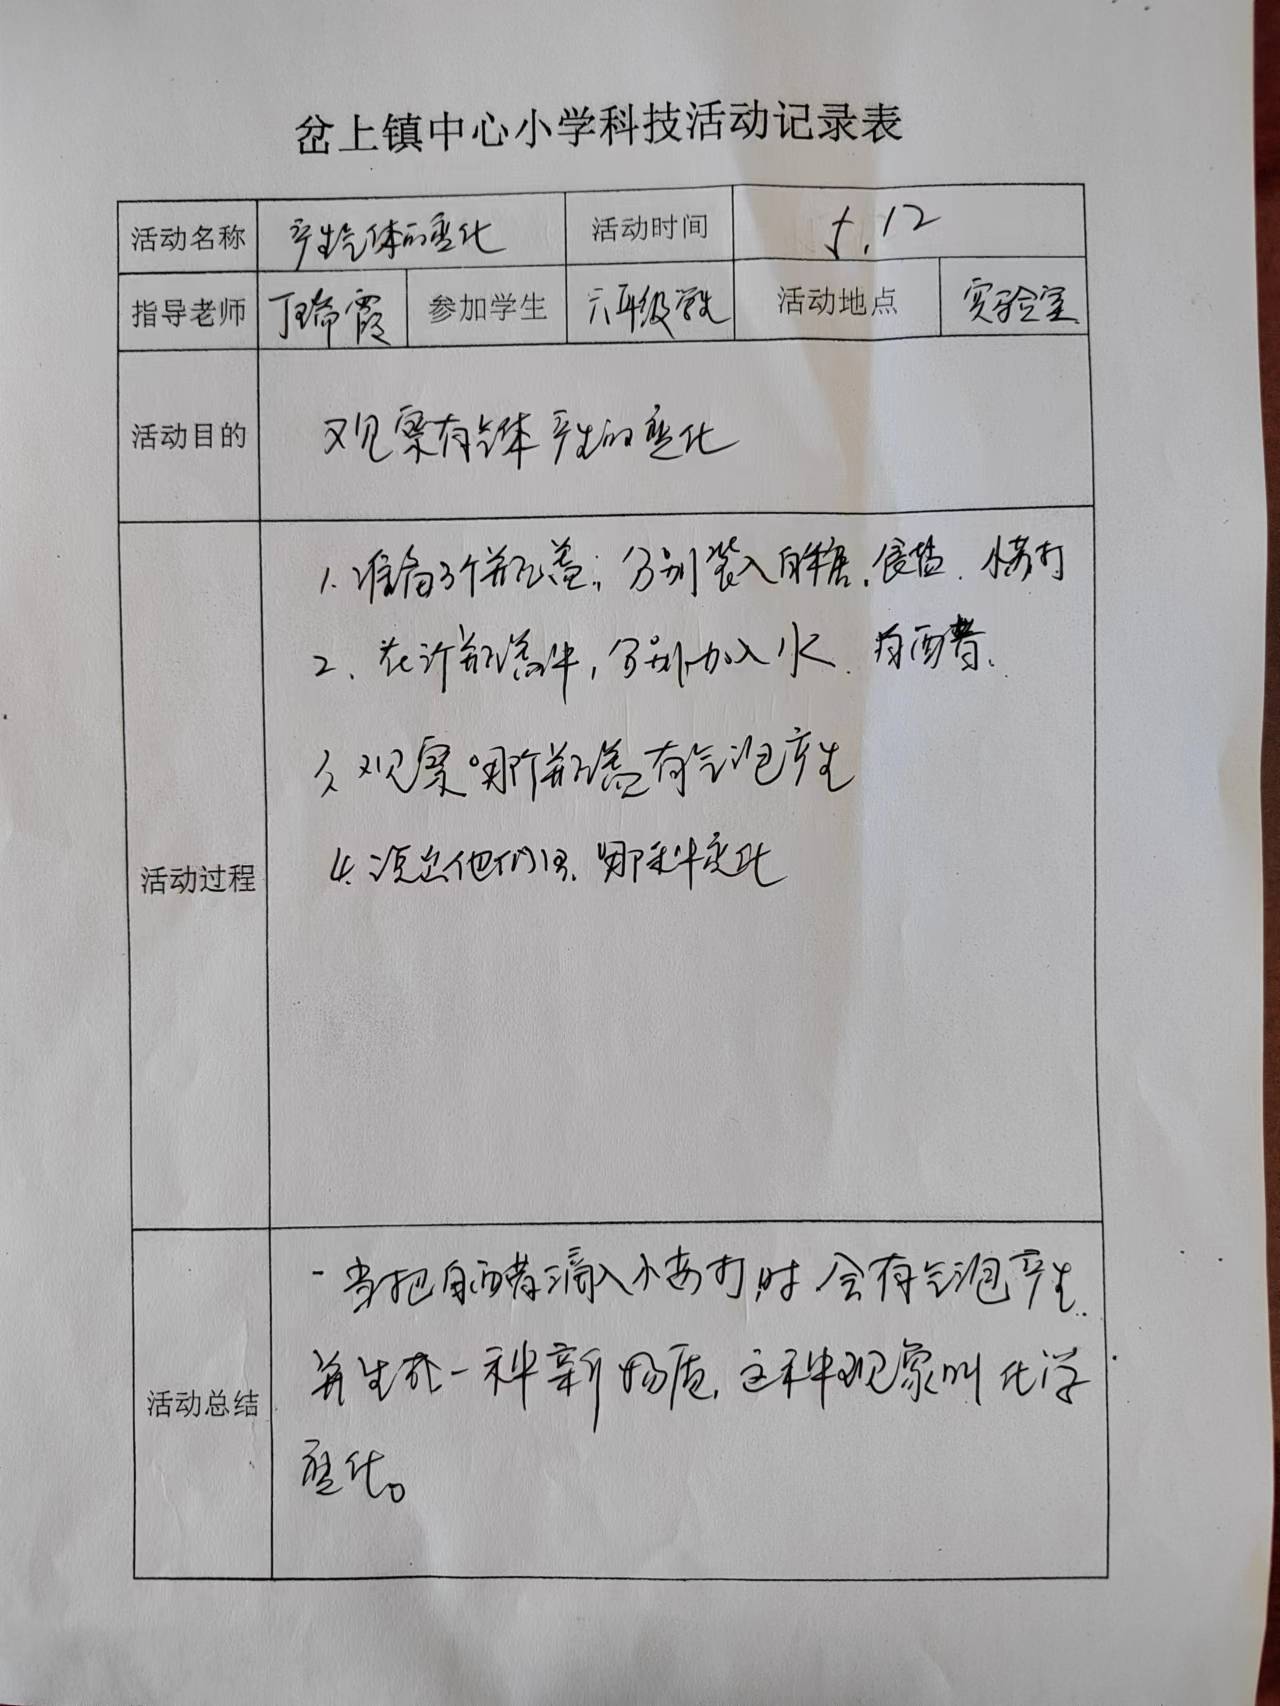 岔上镇中心小学科技活动记录表
活动名称 产生气体的变化 活动时间 5.12
指导老师 丁瑞霞 参加学生 六年级学生 活动地点 实验室
活动目的 观察有气体产生的变化
活动过程
1. 准备3个瓶盖, 分别装入白糖, 食盐. 小苏打
2、在许瓶盖中, 分别加入水、白酒醋.
3. 观察哪个瓶盖有气泡产生
4. 他们 哪种变化
活动总结
- 当把白酒醋滴入小苏打时 会有气泡产生.
并生成一种新物质, 这种现象叫化学
变化。